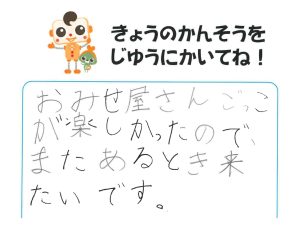 きょうのかんそうを
じゆうにかいてね！
おみせ屋さんごっこ
が楽しかったので、
またあるとき来
たいです。